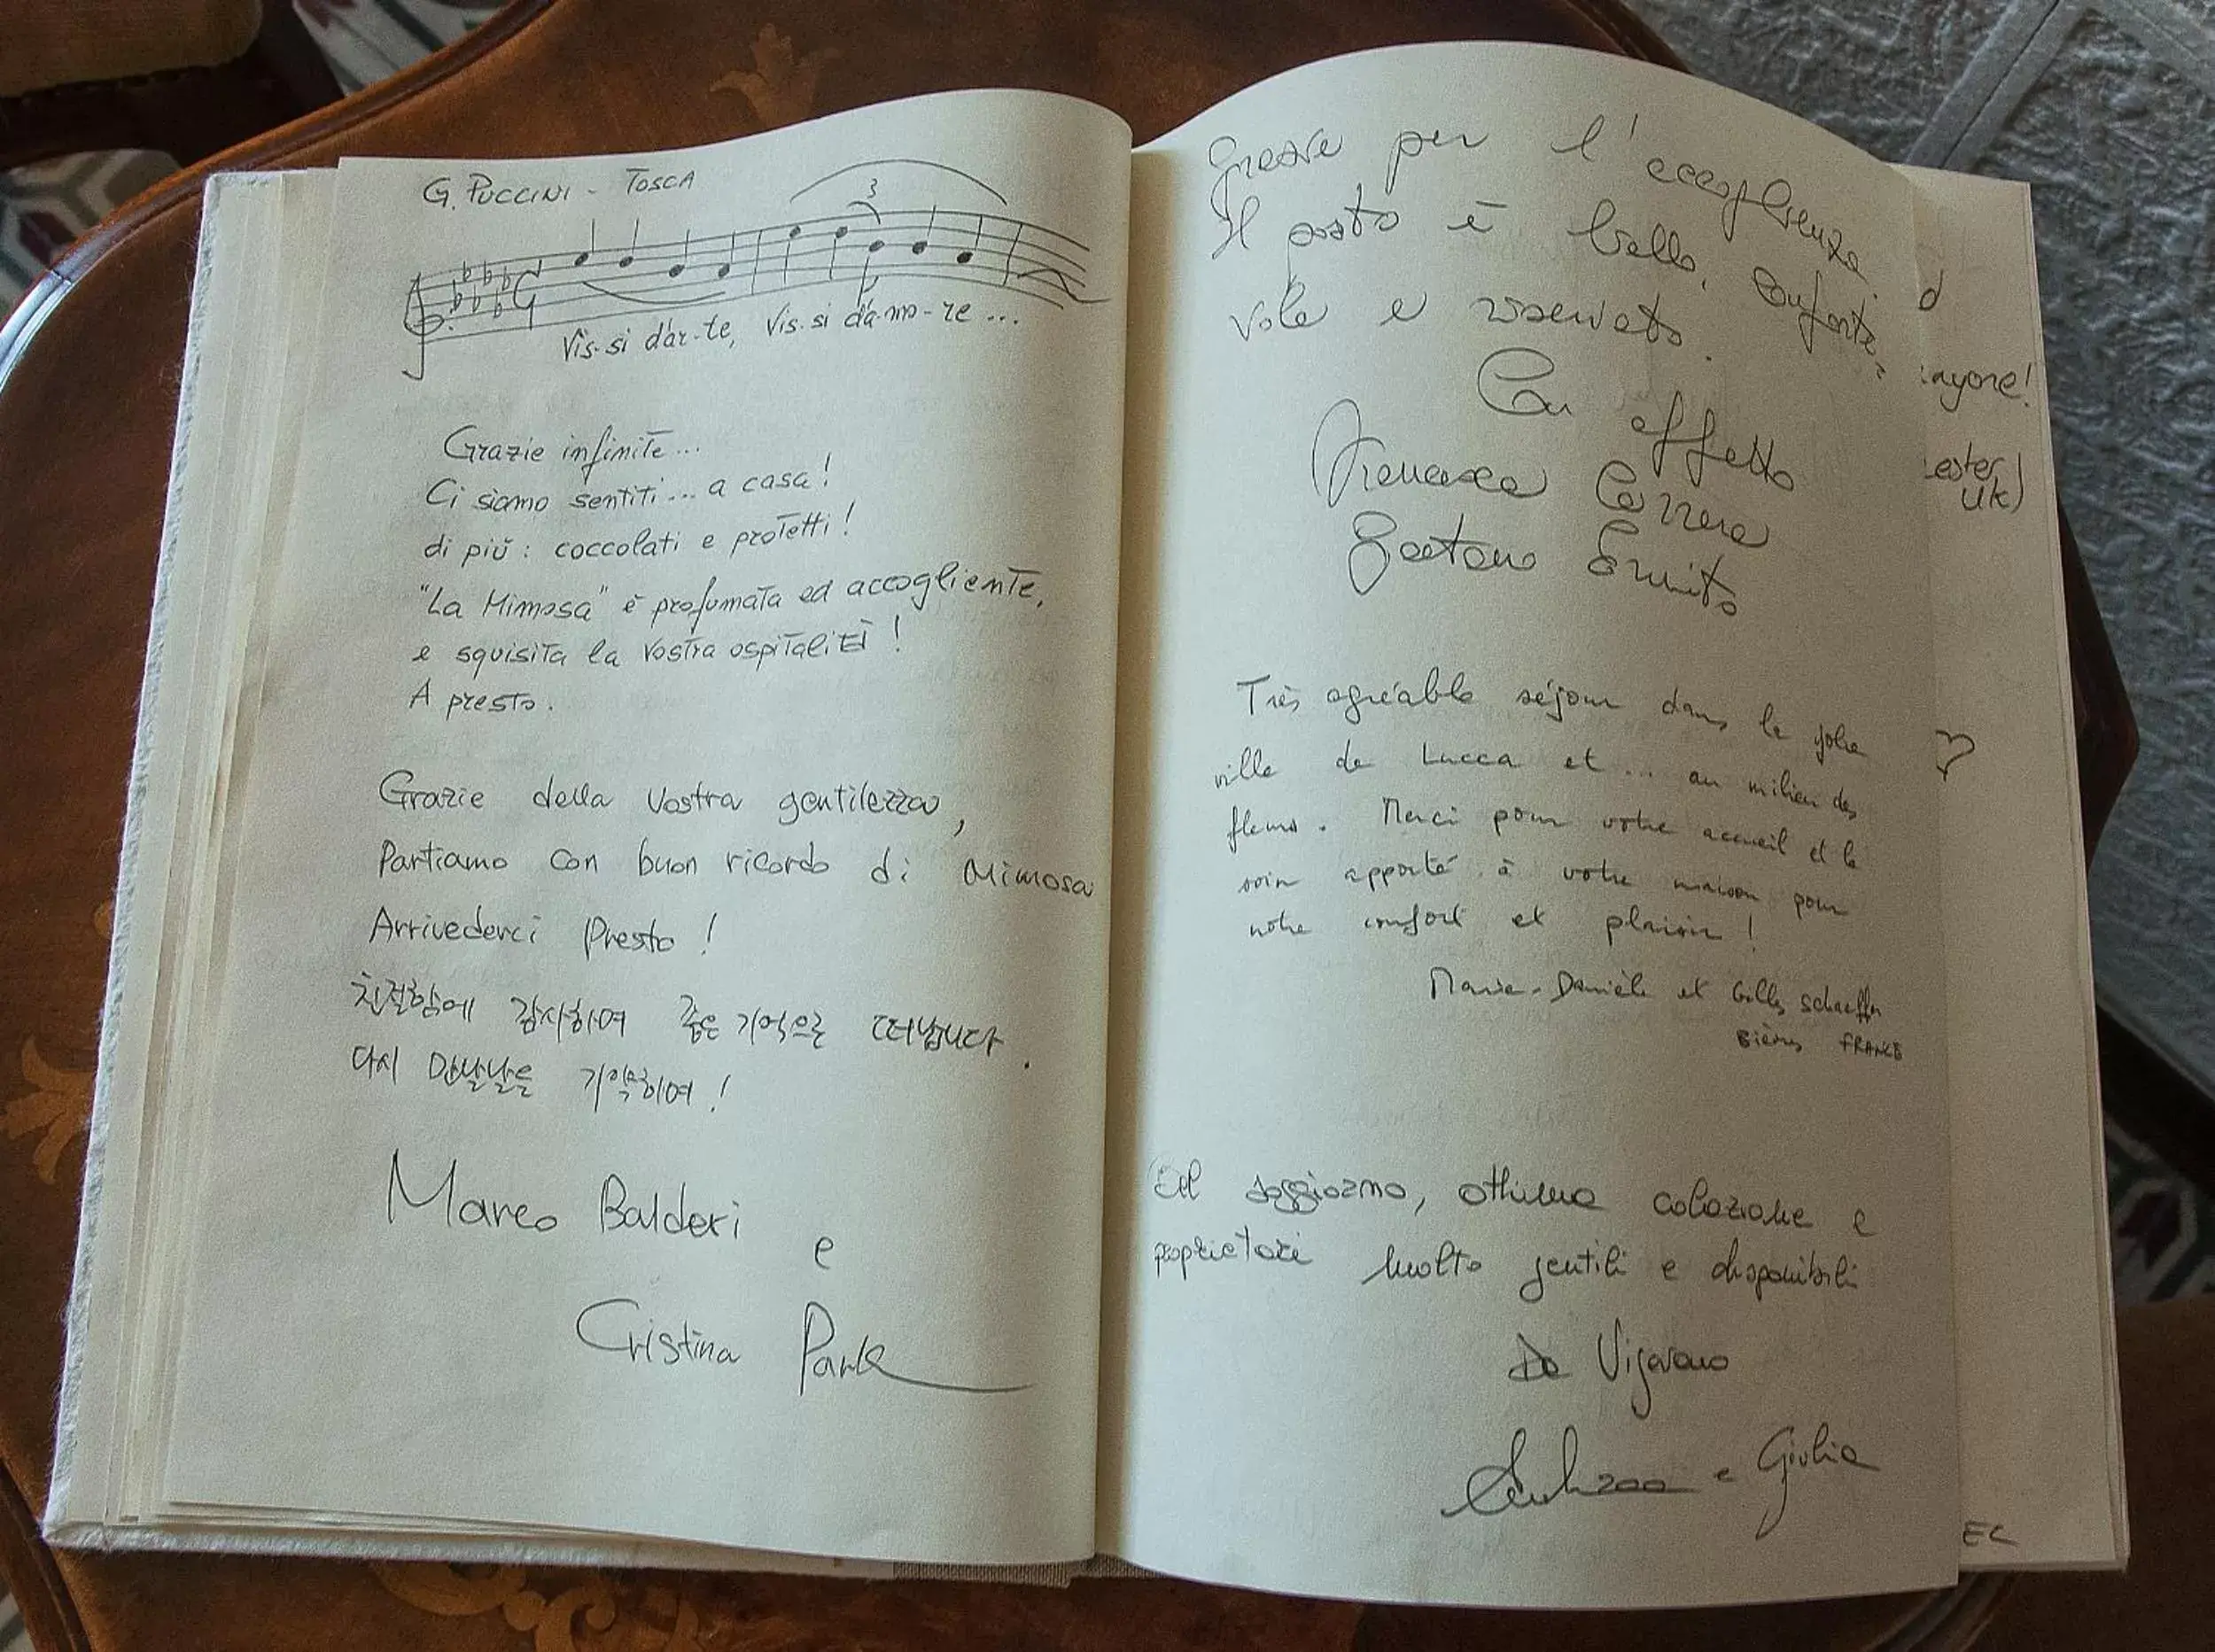 G. PUCCINI - TOSCA
3
Vis-si d'ar-te, Vis-si d'a-mo-re ...
Grazie infinite...
Ci siamo sentiti... a casa!
di più: coccolati e protetti!
"La Mimosa" è profumata ed accogliente,
e squisita la vostra ospitalità!
A presto.
Grazie della vostra gentilezza,
Partiamo con buon ricordo di Mimosa
Arrivederci Presto!
친절함에 감사하며 좋은 기억으로 떠납니다.
다시 만날날을 기약하며!
Marco Balderi
e
Cristina Park
Grazie per l'accoglienza.
Il posto è bello, conforte-
vole e riservato.
Con affetto
Francesca Carrera
Gaetano
Très agréable séjour dans la jolie
ville de Lucca et... au milieu des
fleurs. Merci pour votre accueil et le
soin apporté à votre maison pour
notre confort et plaisir!
Marie-Danièle et Gilles Schaeffer
Bièvres FRANCE
soggiorno, ottima colazione e
proprietari molto gentili e disponibili
Da Vigevano
e Giulia
ayone!
ester
UK)
EC